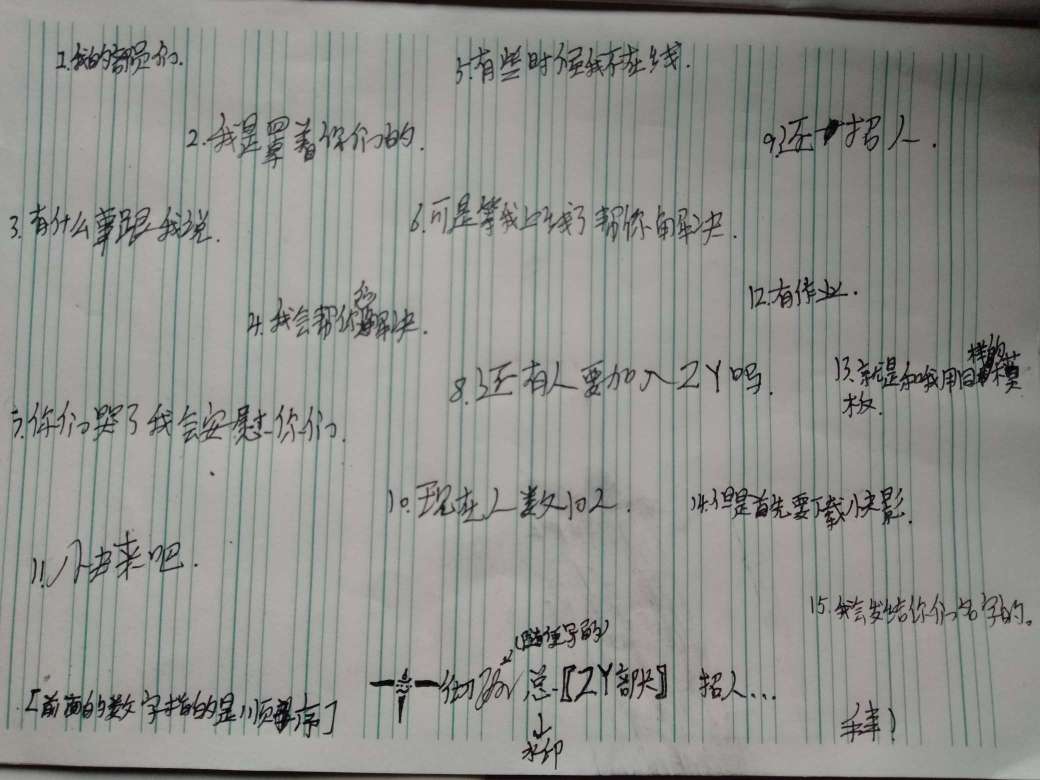 1.我的部员们.
2.我是罩着你们的.
3.有什么事跟我说.
4.我会帮你们解决.
5.有些时候我不在线.
6.可是等我上线了帮你们解决.
7.你们哭了我会安慰你们.
8.还有人要加入ZY吗.
9.还招人.
10.现在人数10人.
11.快来吧.
12.有作业.
13.就是和我用同样的模
板.
14.但是首先要下载快影.
15.我会发给你们名字的。
(随便写的)
总-〖ZY部快〗 招人...
水印
[前面的数字指的是顺序]